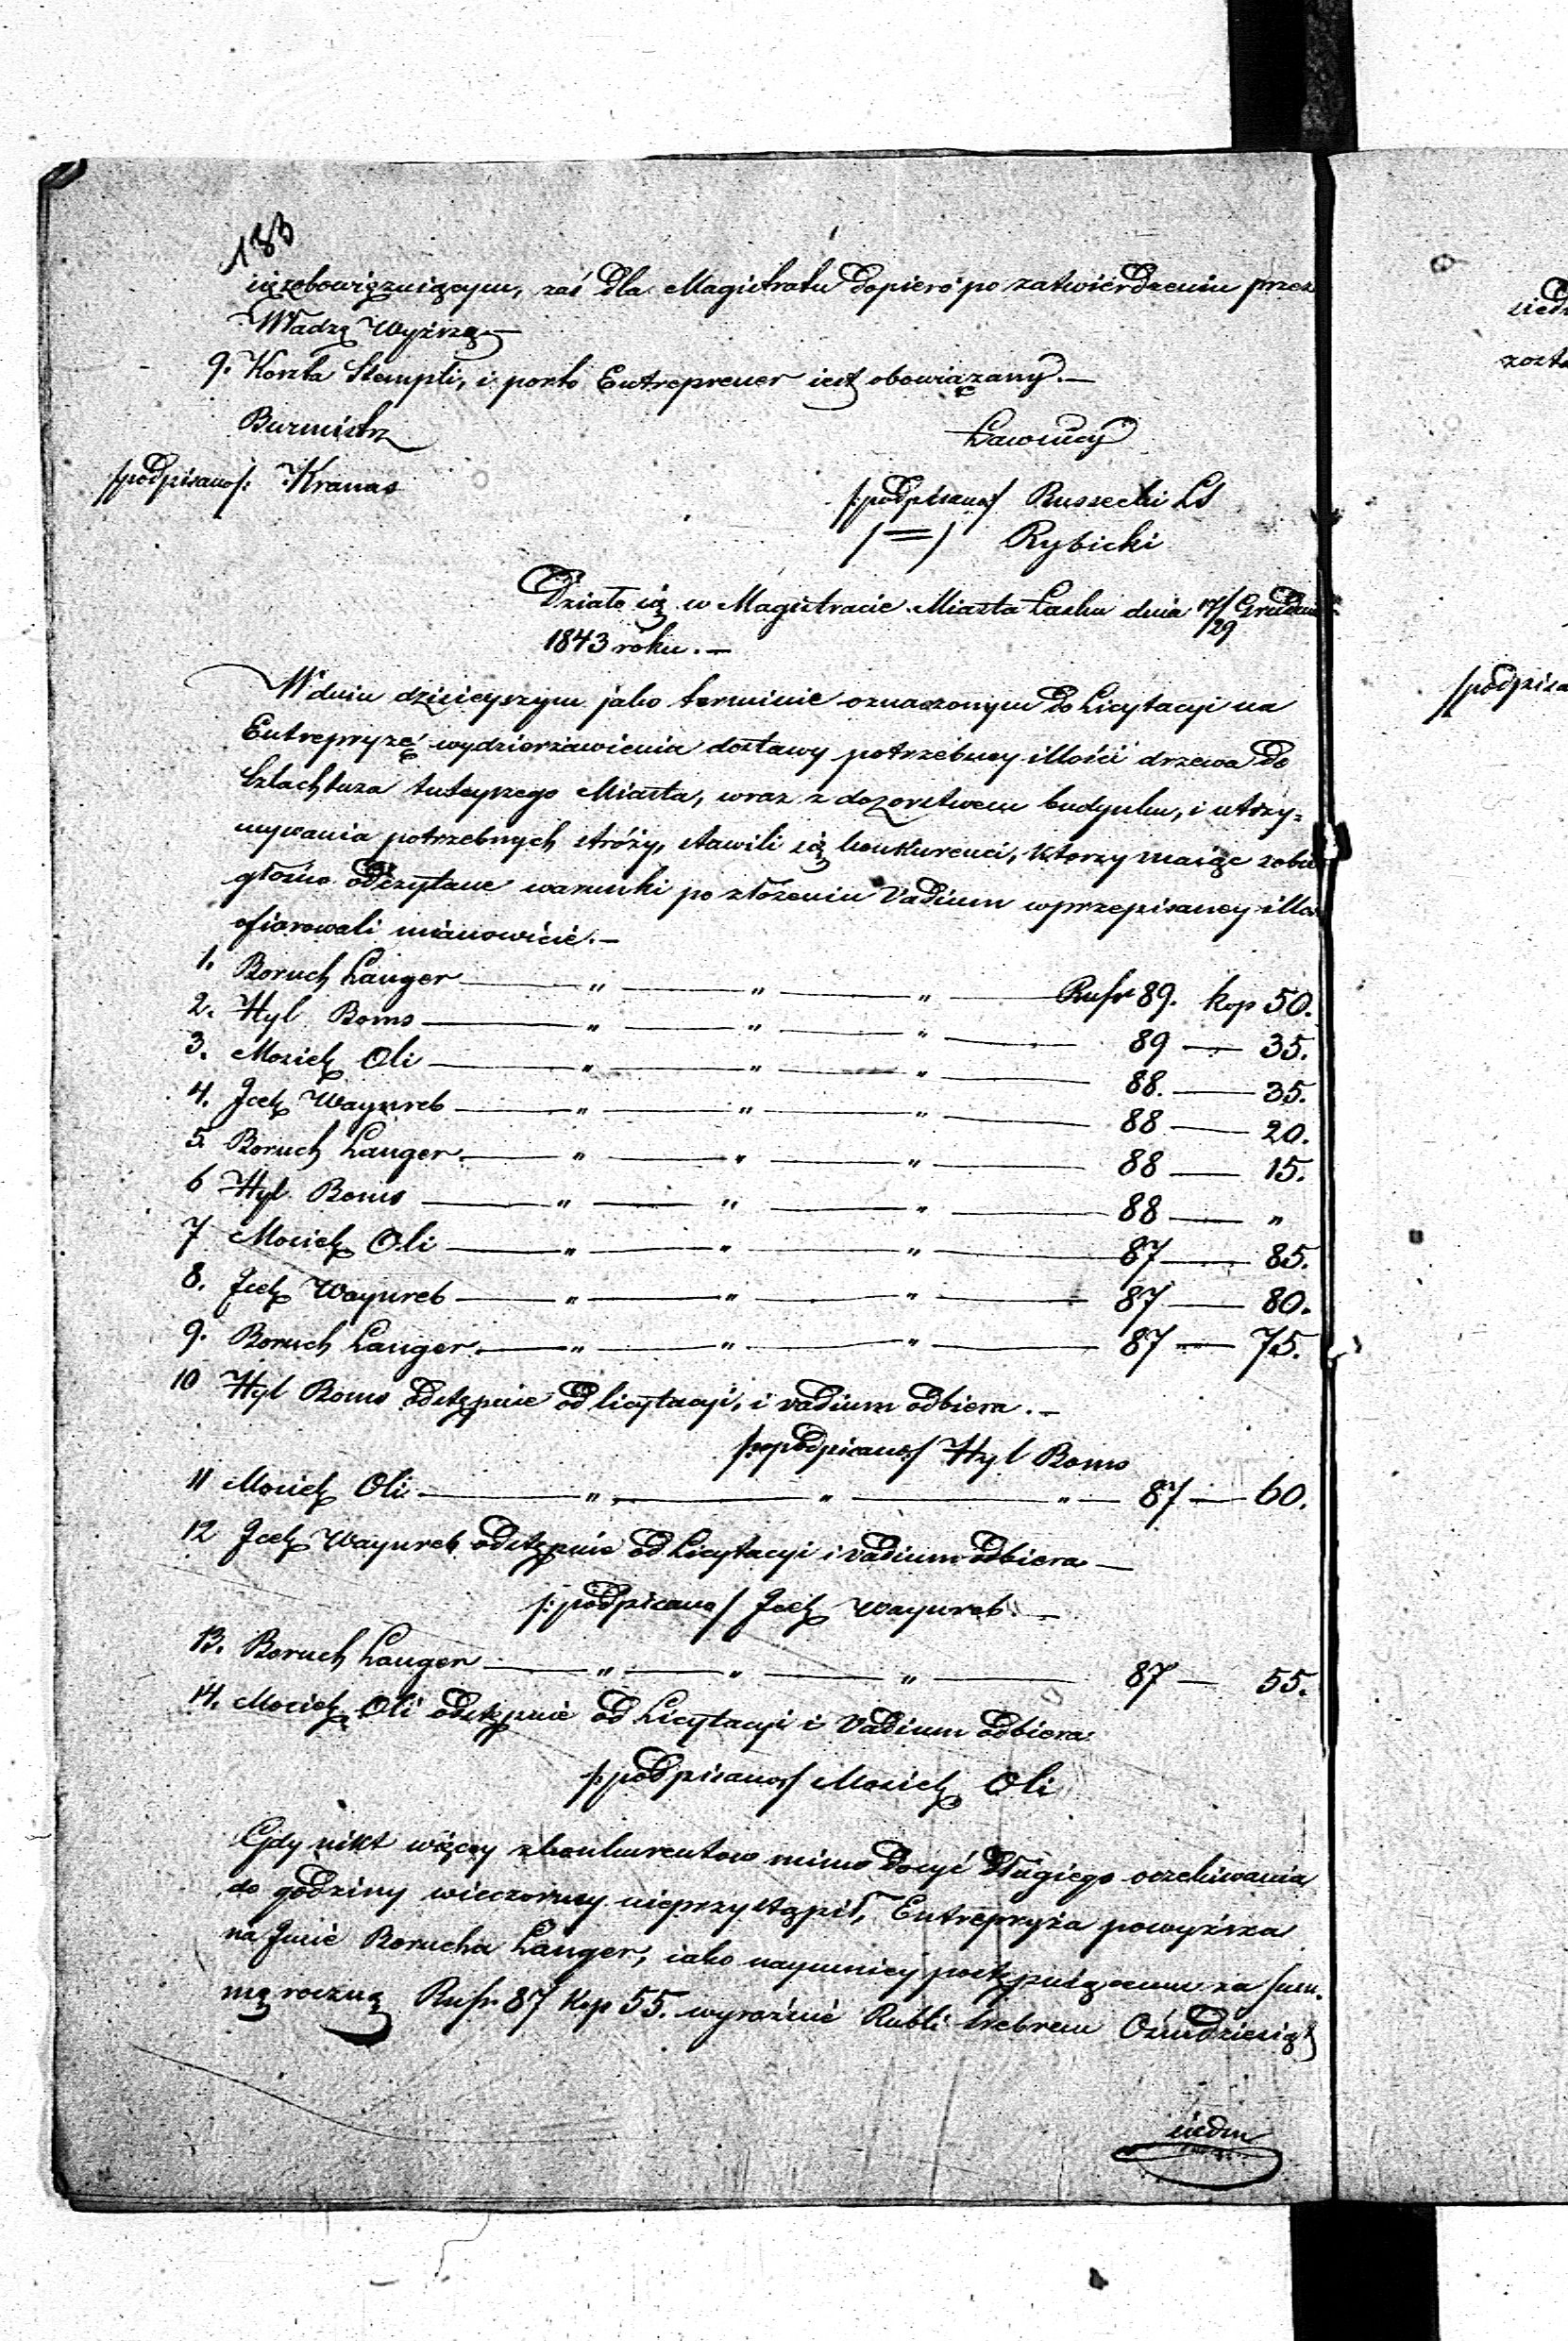 183
się zobowięzuiącym, zaś dla Magistratu dopiero po zatwierdzeniu przez
Władzę Wyższą —
9. Koszta Stempli, i porto Entreprener iest obowiązany. —
Burmistrz
Ławnicy
/podpisano/: Kranas
/:podpisano/ Russecki LS
/=/ Rybicki
Działo się w Magistracie Miasta Łasku dnia 17/29 Grudnia
1843 roku. —
W dniu dzisieyszym jako terminie oznaczonym do Licytacyi na
Entrepryzę wydzierżawienia dostawy potrzebney illości drzewa do
Szlachtuza tuteyszego Miasta, wraz z dozorstwem budynku, i utrzy-
mywania potrzebnych stróży, stawili się konkurenci, którzy maiąc sobie
głośno odczytane warunki po złożeniu Vadium w przepisaney illości
ofiarowali mianowicie. —
1. Boruch Langer — " — " — " — Rusr 89. kop 50.
2. Hyl Boms — " — " — " — 89 — 35.
3. Mosiek Oli — " — " — " — 88. — 35.
4. Icek Waynreb — " — " — " — 88 — 20.
5. Boruch Langer. — " — " — " — 88 — 15.
6 Hyl Boms — " — " — " — 88 — "
7 Mosiek Oli — " — " — " — 87 — 85.
8. Icek Waynreb — " — " — " — 87 — 80.
9. Boruch Langer. — " — " — " — 87 — 75.
10 Hyl Boms odstępuie od licytacyi, i vadium odbiera. —
/:podpisano/ Hyl Boms
11 Mosiek Oli — " — " — " — 87 — 60.
12 Icek Waynreb odstępuie od Licytacyi i vadium odbiera —
/:podpisano/ Icek Waynreb. —
13. Boruch Langer — " — " — " — 87 — 55.
14. Mosiek Oli odstępuie od Licytacyi i Vadium odbiera
/:podpisano/ Mosiek Oli
Gdy nikt więcey z konkurentow mimo dosyć długiego oczekiwania
do godziny wieczorney nieprzystąpił, Entrepryza powyższa
na Imie Borucha Langer, iako naymniey postępuiącemu za sum-
mę roczną Rusr 87 kop 55. wyraźnie Rubli srebrem Ośmdziesiąt
siedm